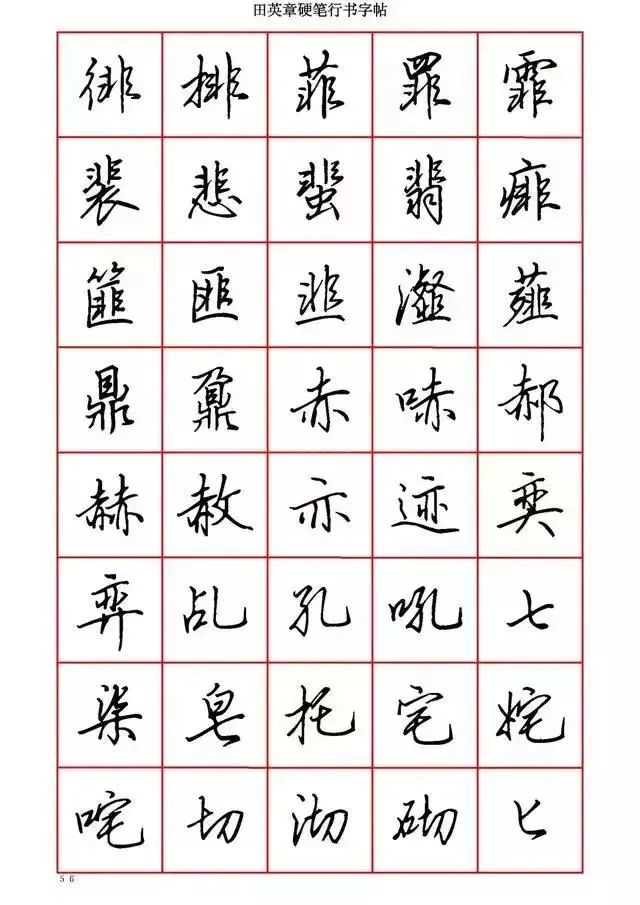 田英章硬笔行书字帖
徘 排 菲 罪 霏
裴 悲 蜚 翡 痱
篚 匪 韭 瀣 薤
鼎 鼐 赤 哧 郝
赫 赦 亦 迹 奕
弈 乩 孔 吼 七
柒 皂 托 宅 姹
咤 切 沏 砌 匕
56